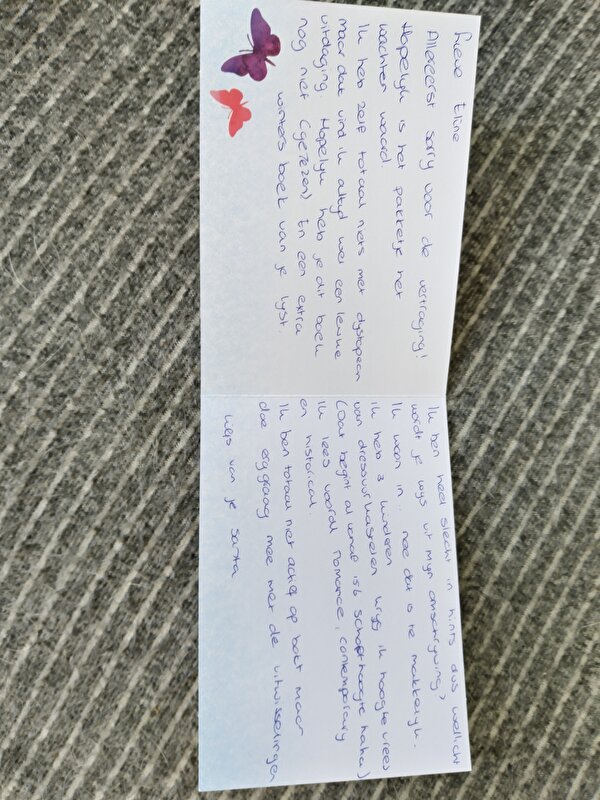 Lieve Eline
Allereerst sorry voor de vertraging!
Hopelijk is het pakketje het
wachten waard.
Ik heb zelf totaal niets met dystopean
maar dat vind ik altijd wel een leuke
uitdaging. Hopelijk heb je dit boek
nog niet (gelezen) En een extra
winters boek van je lijst.
Ik ben heel slecht in hints dus wellicht
wordt je wijs uit mijn omschrijving?
Ik woon in .. nee dat is te makkelijk.
ik heb 3 kinderen krijg ik hoogte vrees
van dressuurkastelen
(Dat begint al vanaf 1.56 schofthoogte haha)
Ik lees vooral Romance, contemporary
en historical.
Ik ben totaal niet actief op bokt maar
doe erg graag mee met de uitwisselingen
Liefs van je santa